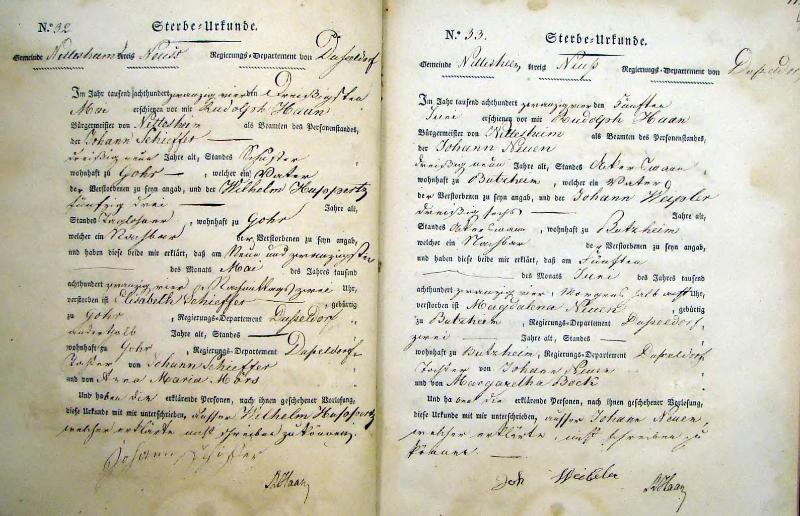 N.º 32. Sterbe-Urkunde.
Gemeinde Nettesheim Kreis Neuss Regierungs-Departement von Dusseldorf
Im Jahr tausend achthundert zwanzig vier den Dreißigsten
Mai erschienen vor mir Rudolph Haan
Bürgermeister von Nettesheim als Beamten des Personenstandes,
der Johann Schieffer
dreißig neun Jahre alt, Standes Schuster
wohnhaft zu Gohr, welcher ein Vater
der Verstorbenen zu seyn angab, und der Wilhelm Huppertz
fünfzig drei Jahre alt,
Standes Taglöhner, wohnhaft zu Gohr
welcher ein Nachbar der Verstorbenen zu seyn angab,
und haben diese beide mir erklärt, daß am Neun und zwanzigsten
des Monats Mai des Jahres tausend
achthundert zwanzig vier Nachmittags zwei Uhr,
verstorben ist Elisabeth Schieffer gebürtig
zu Gohr, Regierungs-Departement Dußeldorf,
anderthalb Jahre alt, Standes
wohnhaft zu Gohr, Regierungs-Departement Dußeldorf,
Tochter von Johann Schieffer
und von Anna Maria Mörs
Und haben die erklärende Personen, nach ihnen geschehener Vorlesung,
diese Urkunde mit mir unterschrieben, ausser Wilhelm Huppertz
welcher erklärte nicht schreiben zu können.
Johann Schiffer
R Haan
N.º 33. Sterbe-Urkunde.
Gemeinde Nettesheim Kreis Neuß Regierungs-Departement von Dusseldorf
Im Jahr tausend achthundert zwanzig vier den Fünften
Juni erschienen vor mir Rudolph Haan
Bürgermeister von Nettesheim als Beamten des Personenstandes,
der Johann Neuen
dreißig neun Jahre alt, Standes Ackersmann
wohnhaft zu Butzheim, welcher ein Vater
der Verstorbenen zu seyn angab, und der Johann
dreißig sechs Jahre alt,
Standes Ackersmann, wohnhaft zu Butzheim
welcher ein Nachbar der Verstorbenen zu seyn angab,
und haben diese beide mir erklärt, daß am Fünften
des Monats Juni des Jahres tausend
achthundert zwanzig vier, Morgens halb acht Uhr,
verstorben ist Magdalena Neuen gebürtig
zu Butzheim, Regierungs-Departement Dusseldorf,
zwei Jahre alt, Standes
wohnhaft zu Butzheim, Regierungs-Departement Dusseldorf
Tochter von Johann Neuen
und von Margaretha Bock
Und haben die erklärende Personen, nach ihnen geschehener Vorlesung,
diese Urkunde mit mir unterschrieben, ausser Johann Neuen,
welcher erklärte nicht schreiben zu
können.
Joh
R Haan